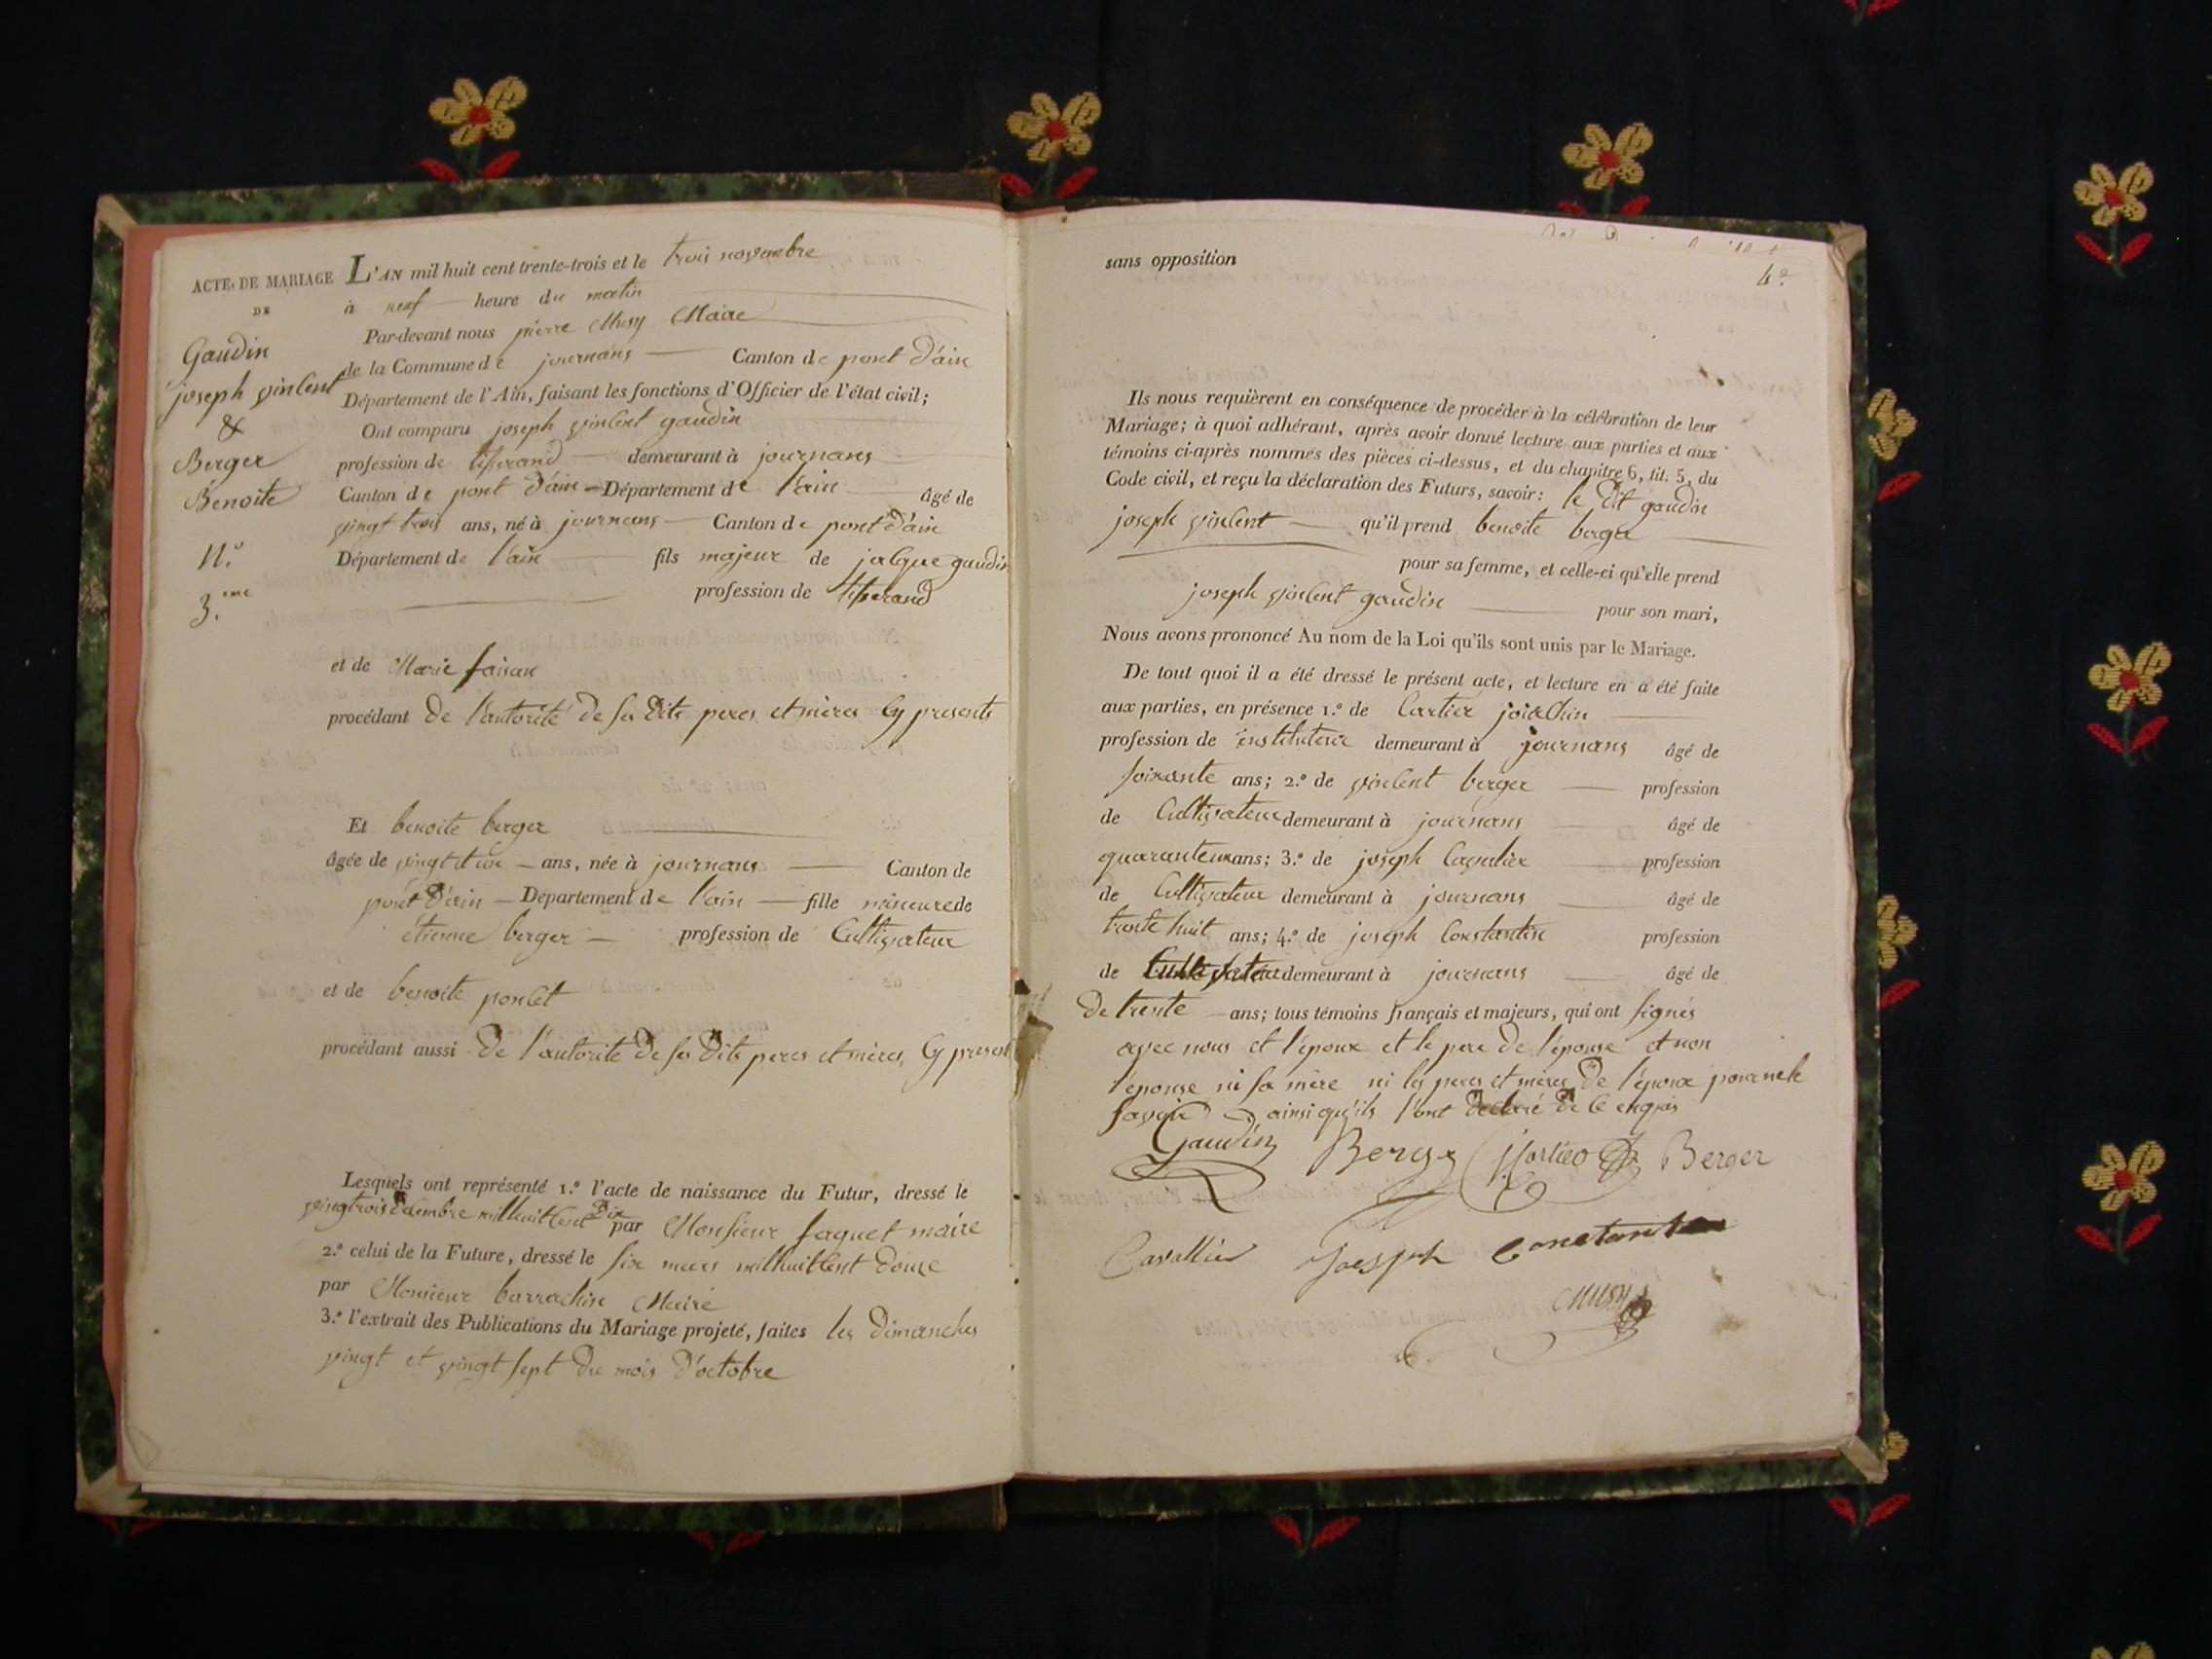 ACTE DE MARIAGE
DE
Gaudin
joseph vincent
&
Berger
Benoite
N.°
3.eme
L'AN mil huit cent trente-trois et le trois novembre
à neuf heure du matin
Par-devant nous pierre Musy Maire
de la Commune de journans Canton de pont d'ain
Département de l'Ain, faisant les fonctions d'Officier de l'état civil;
Ont comparu joseph vincent gaudin
profession de tisserand demeurant à journans
Canton de pont d'ain Département de l'ain âgé de
vingt trois ans, né à journans Canton de pont d'ain
Département de l'ain fils majeur de jacque gaudin
profession de tisserand
et de Marie faisan
procédant de l'autorité de ses dits peres et mères cy presents
Et benoite berger
âgée de vingt et un ans, née à journans Canton de
pont d'ain Département de l'ain fille mineure de
étienne berger profession de Cultivateur
et de benoite poncet
procédant aussi de l'autorité de ses dits peres et mères cy present
Lesquels ont représenté 1.° l'acte de naissance du Futur, dressé le
vingtrois décembre milhuitcent dix par Monsieur faguet maire
2.° celui de la Future, dressé le six mars milhuitcent douze
par Monsieur barrachin Maire
3.° l'extrait des Publications du Mariage projeté, faites les dimanches
vingt et vingt sept du mois d'octobre
4e
sans opposition
Ils nous requièrent en conséquence de procéder à la célébration de leur
Mariage; à quoi adhérant, après avoir donné lecture aux parties et aux
témoins ci-après nommés des pièces ci-dessus, et du chapitre 6, tit. 5, du
Code civil, et reçu la déclaration des Futurs, savoir: le dit gaudin
joseph vincent qu'il prend benoite berger
pour sa femme, et celle-ci qu'elle prend
joseph vincent gaudin pour son mari,
Nous avons prononcé Au nom de la Loi qu'ils sont unis par le Mariage.
De tout quoi il a été dressé le présent acte, et lecture en a été faite
aux parties, en présence 1.° de Cartier joiachin
profession de instituteur demeurant à journans âgé de
soixante ans; 2.° de vincent berger profession
de Cultivateur demeurant à journans âgé de
quaranteun ans; 3.° de joseph Cavalier profession
de Cultivateur demeurant à journans âgé de
trente huit ans; 4.° de joseph Constantin profession
de Cultivateur demeurant à journans âgé de
de trente ans; tous témoins français et majeurs, qui ont signés
avec nous et l'époux et le pere de l'épouse et non
l'épouse ni sa mère ni les peres et mères de l'époux pour ne le
savoir ainsi qu'ils l'ont declaré de ce enquis
Gaudin Berge Berger
Cavallier Joesph Constantin
Musy